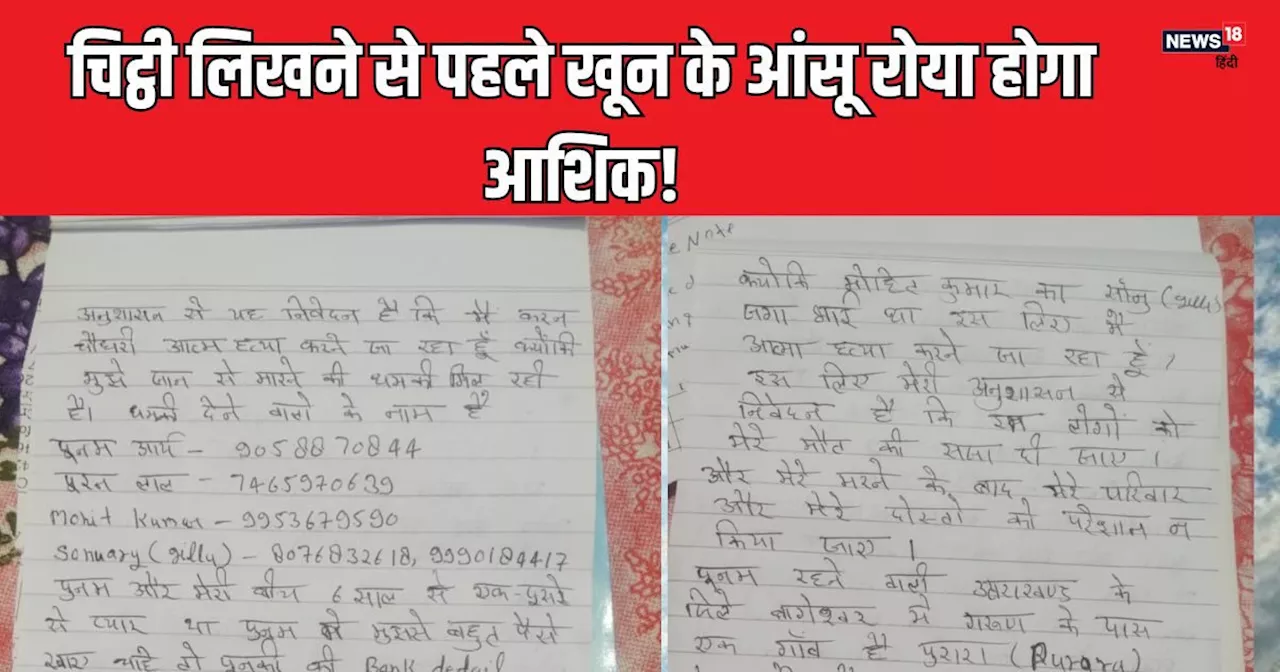 चिट्ठी लिखने से पहले खून के आंसू रोया होगा
आशिक!
NEWS 18
हिंदी
अनुशासन से यह निवेदन है कि मै करन
चौधरी आत्म हत्या करने जा रहा हूँ क्योंकि
मुझे जान से मारने की धमकी मिल रही
है। धमकी देने वालो के नाम है
पूनम आर्य - 9058870844
पूरन लाल - 7465970639
Mohit Kumar - 9953679590
Sonuary (gilly) - 8076832618, 9990184417
पुनम और मेरी बीच 6 साल से एक-दुसरे
से प्यार था पुनम ने मुझसे बहुत पैसे
खाए चाहे तो पुनकी की Bank detail
e Note
क्योकि मोहित कुमार का सोनु (gilly)
जगा भाई था इस लिए मै
आत्मा हत्या करने जा रहा हूँ।
इस लिए मेरी अनुशासन से
निवेदन है कि इन लोगों को
मेरे मौत की सजा दी जाए।
और मेरे मरने के बाद मेरे परिवार
और मेरे दोस्तो को परेशान न
किया जाए।
पूनम रहने वाली उत्तराखण्ड के
जिले बागेश्वर मे गरुण के पास
एक गॉव है पुरारा (Purara)